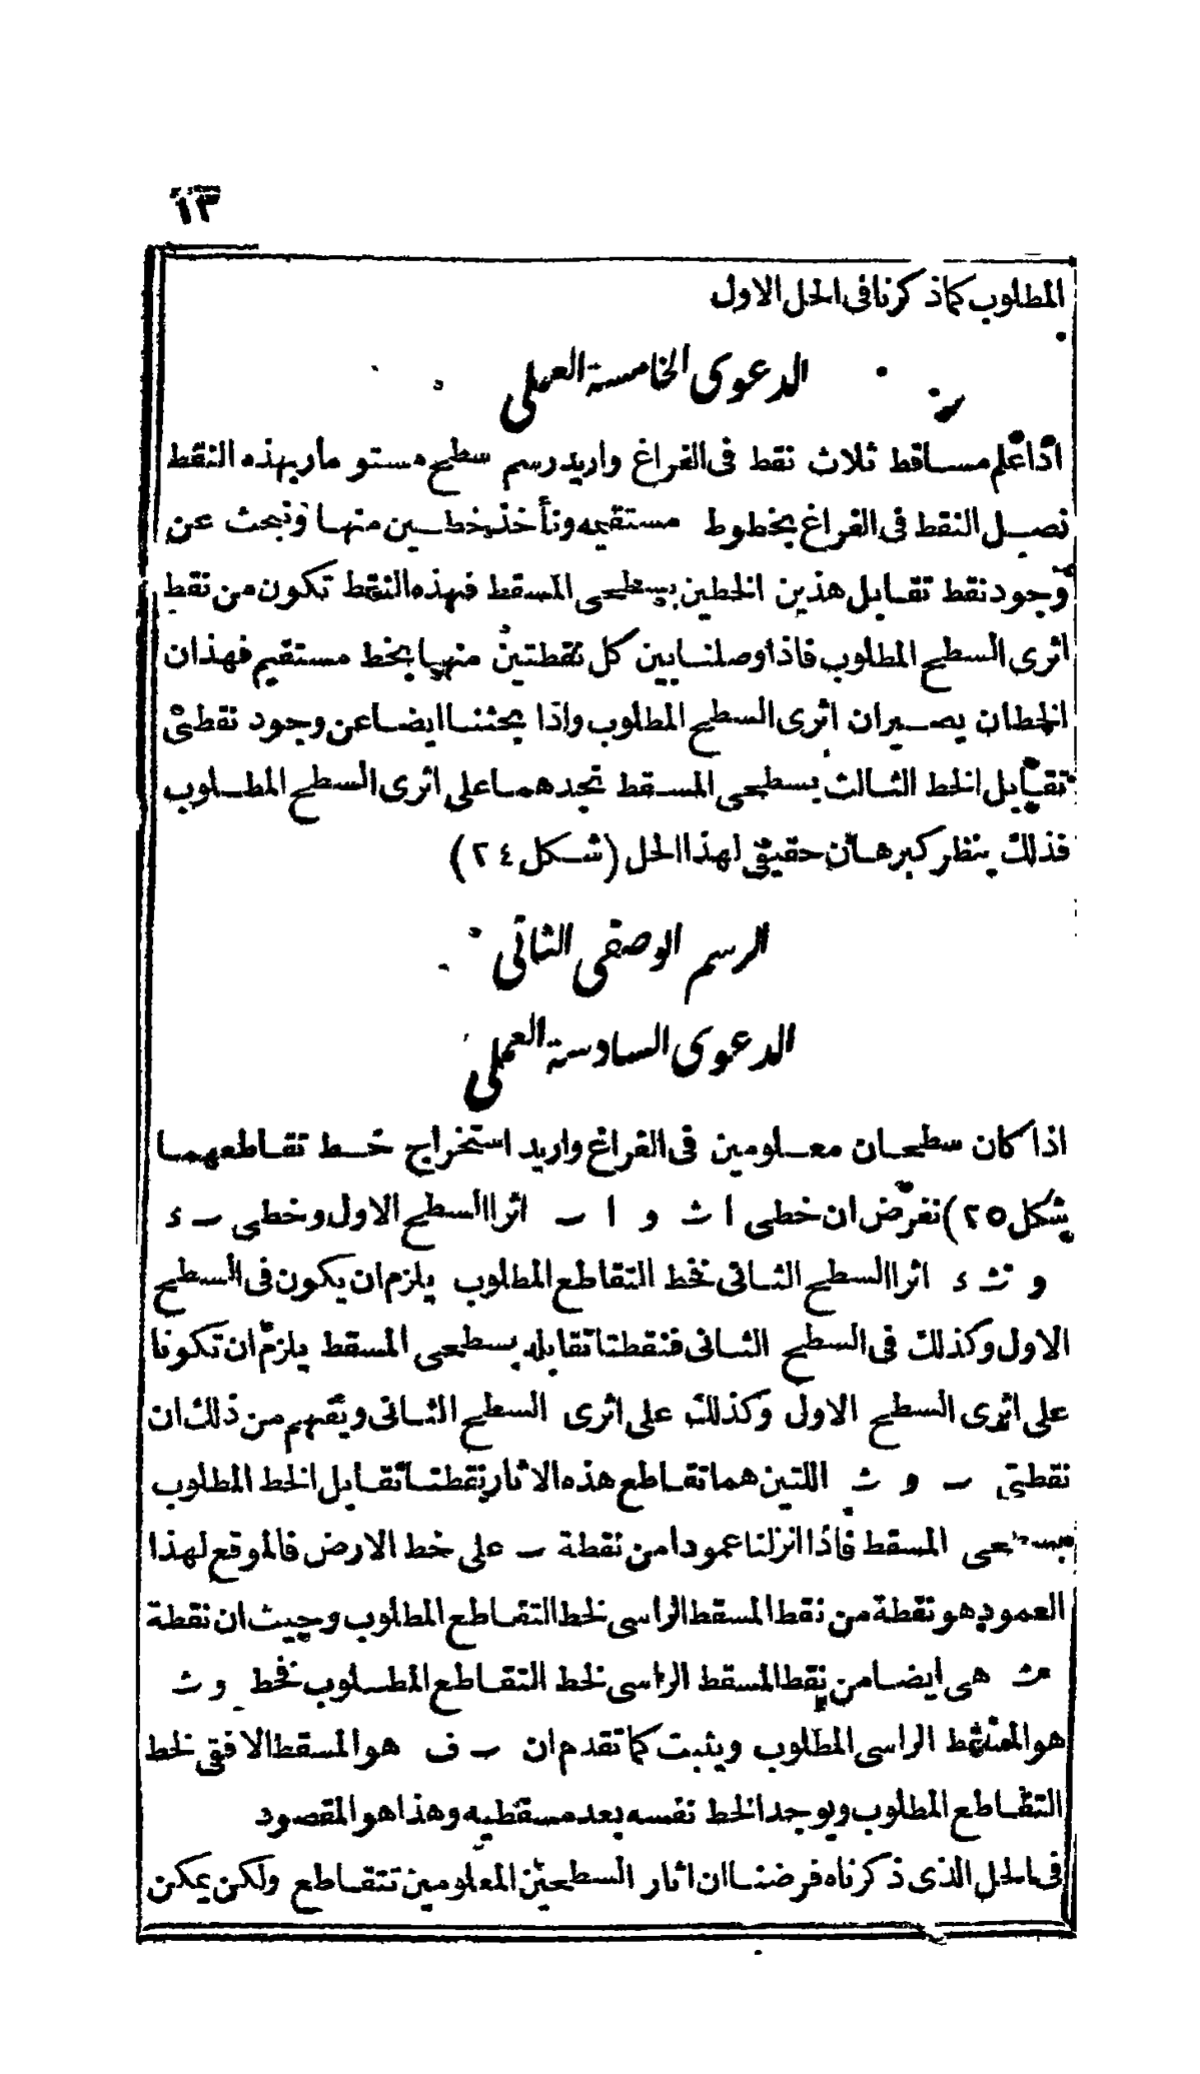 ١٣
المطلوب كما ذكرنا فى الحل الاول
الدعوى الخامسة العملى
اذا علم مساقط ثلاث نقط فى الفراغ واريد رسم سطح مستو مار بهذه النقط
نصل النقط فى الفراغ بخطوط مستقيمه ونأخذ خطين منها ونبحث عن
وجود نقط تقابل هذين الخطين بسطحى المسقط فهذه النقط تكون من نقط
اثرى السطح المطلوب فاذا وصلنا بين كل نقطتين منها بخط مستقيم فهذان
الخطان يصيران اثرى السطح المطلوب واذا بحثنا ايضا عن وجود نقطتى
تقابل الخط الثالث بسطحى المسقط تجدهما على اثرى السطح المطلوب
فذلك ينظر كبرهان حقيقى لهذا الحل (شكل ٢٤)
الرسم الوصفى الثانى
الدعوى السادسة العملى
اذا كان سطحان معلومين فى الفراغ واريد استخراج خط تقاطعهما
شكل ٢٥) نفرض ان خطى ا ث و ا ب اثرا السطح الاول وخطى ب د
و ث د اثرا السطح الثانى فخط التقاطع المطلوب يلزم ان يكون فى السطح
الاول وكذلك فى السطح الثانى فنقطتا تقابله بسطحى المسقط يلزم ان تكونا
على اثرى السطح الاول وكذلك على اثرى السطح الثانى ويفهم من ذلك ان
نقطتى ب و ث اللتين هما تقاطع هذه الاثار نقطتا تقابل الخط المطلوب
بسطحى المسقط فاذا انزلنا عمودا من نقطة ب على خط الارض فالموقع لهذا
العمود هو نقطة من نقط المسقط الراسى لخط التقاطع المطلوب وحيث ان نقطة
ث هى ايضا من نقط المسقط الراسى لخط التقاطع المطلوب فخط و ث
هو المسقط الراسى المطلوب ويثبت كما تقدم ان ب ف هو المسقط الافقى لخط
التقاطع المطلوب ويوجد الخط نفسه بعد مسقطيه وهذا هو المقصود
فى الحل الذى ذكرناه فرضنا ان اثار السطحين المعلومين تتقاطع ولكن يمكن